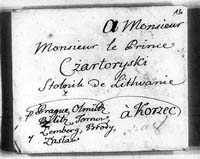 12
a Monsieur
Monsieur le Prince
Czartoryski
Stolnik de Lithuanie
p Prague, Olmütz
Bilitz, Tornov,
Lemberg, Brody,
Zaslaw
a Korzec